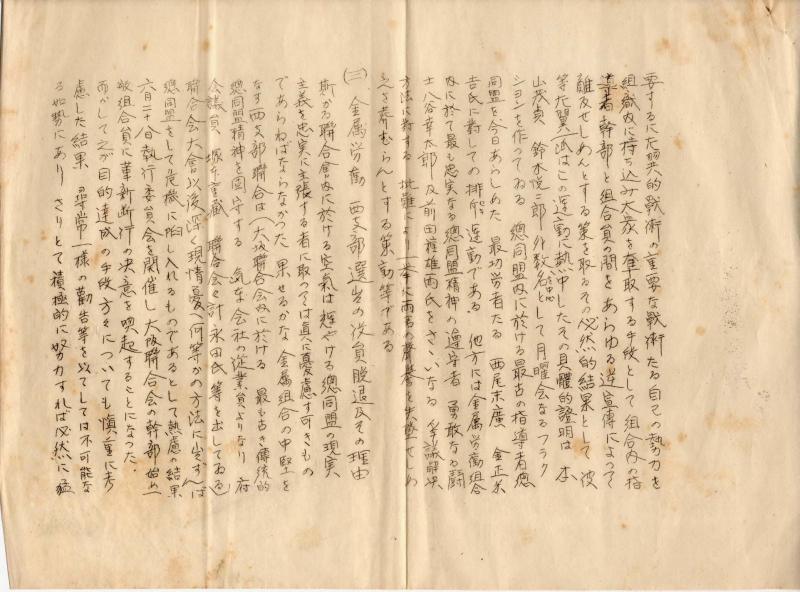 要するにこれ共的戦術の重要な戦術たる自己の勢力を
組織内に持ち込み大衆を奪取する手段として組合内の指
導者幹部と組合員の間をあらゆる逆宣伝によって
離反せしめんとする策を取るその必然的結果として彼
等左翼一派はこの運動に熱中したその具體的證明は
山茂貞 鈴木悦二郎 外数名を中心として月曜会なるフラク
ションを作つてゐる 總同盟内に於ける最古の指導者總
同盟を今日あらしめた 最功労者たる 西尾末廣 金正米
吉氏に対しての排斥運動である 他方には金属労働組合
内に於て最も忠実なる總同盟精神の遵守者 勇敢なる闘
士八谷幸太郎 及前田 雄両氏をさゝいなる 争議解決
方法に対する 批難により 両君の聲誉を失墜せしめ
んとする策動等である
(三) 金属労働 西支部選出の役員脱退及その理由
斯かる聯合會内に於ける空氣は 輝やける總同盟の現実
主義を忠実に主張する者に取つては真に憂慮す可きもの
であらねばならなかつた 果せるかな 金属組合の中堅を
なす西支部聯合は(大阪聯合会内に於ける 最も古き傳統的
總同盟精神を固守する 会社の従業員よりなり 府
会議員 塚本重藏 聯合会々計 永田氏等を出してゐる)
聯合会大會以後深く現情憂へ何等かの方法に出ずんば
總同盟をして危機に陥し入れるものであるとして熱慮の結果
六月二十八日執行委員会を開催し大阪聯合会の幹部始め一
般組合員に革新断行の決意を喚起することになつた.
而かして之が目的達成の手段方々についても慎重に考
慮した結果 尋常一様の勧告等を以てしては不可能な
る如勢にあり さりとて積極的に努力すれば必然に猛